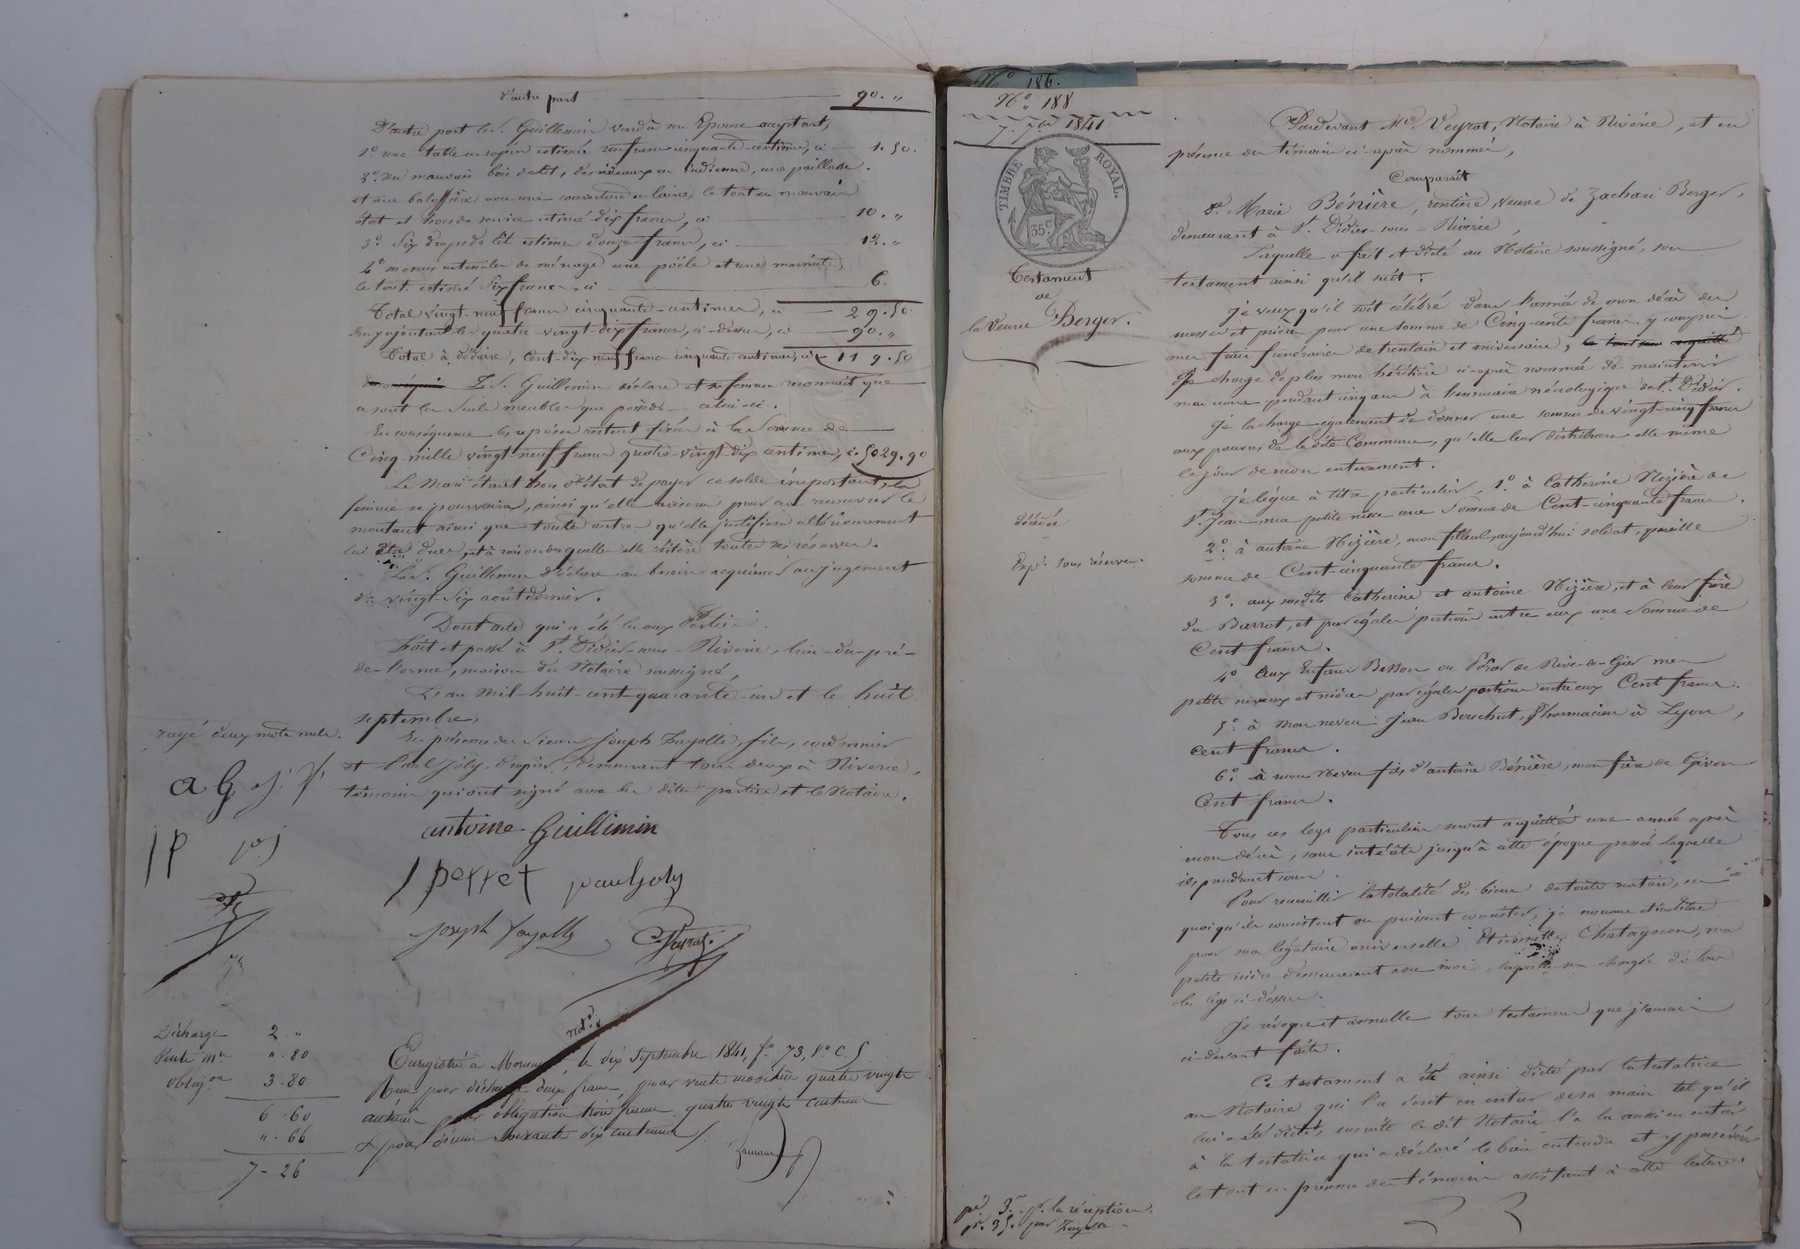 d'autre part 90. "
D'autre part le S. Guillemin vend à son Epouse acceptant,
1º une table en sapin estimée un franc cinquante centimes, ci 1. 50.
2º Un mauvais bois de lit, des rideaux en indienne, une paillasse
et une balassière avec une couverture en laine, le tout en mauvais
état et hors de service estimé dix francs, ci 10. "
3º Six draps de lit estimé douze francs, ci 12. "
4º menus ustensiles de ménage une poële et une marmite,
le tout estimé six francs ci 6.
Total vingt-neuf francs cinquante centimes, ci 29. 50
En y ajoutant les quatre-vingt-dix francs, ci-dessus, ci 90. "
Total à déduire, Cent-dix neuf francs cinquante centimes, ci 119. 50
Le S. Guillemin déclare et sa femme reconnait que
ce sont les seuls meubles que possède celui-ci.
En conséquence les reprises restent fixées à la Somme de
Cinq-mille vingt-neuf francs quatre-vingt-dix centimes, ci 5029. 90
Le Mari étant hors d'état de payer ce solde important, la
femme se pourvoira, ainsi qu'elle avisera pour en recouvrer le
montant ainsi que toute autre qu'elle justifiera ultérieurement
lui être dues, et à raison desquelles elle réitère toutes ses réserves.
Le S. Guillemin déclare au besoin acquiescer au jugement
du vingt-six août dernier.
Dont acte qui a été lu aux Parties
Fait et passé à St. Didier-sous-Riverie, lieu-du-pré-
de-l'orme, maison du Notaire soussigné,
L'an Mil-huit-cent quarante-un et le huit
septembre,
rayé deux mots nuls.
En présence des Sieurs Joseph Fayolle, fils, cordonnier
et Paul Joly, drapier, demeurant tous deux à Riverie,
témoins qui ont signé avec les dites parties et le Notaire.
a G J. F.
antoine Guillimin
J P pj
J perret paul joly
Joseph Fayolle Veyrat
73
Décharge 2 "
Vente Mre " . 80
Obligon 3 . 80
6 . 60
" . 66
7 - 26
Enregistré à Mornant le dix Septembre 1841, fº 73, Vº C. 5.
Reçu pour décharge deux francs, pour vente mobilière quatre vingts
centimes pour obligation trois francs quatre vingts centimes
& pour dixième soixante dix centimes
Nº 186.
Nº 188
7. 7bre 1841
TIMBRE ROYAL.
35c
Testament
de
la Veuve Berger.
décédée
Exp. sous réserve.
Pardevant Me. Veyrat, Notaire à Riverie, et en
présence des témoins ci-après nommés,
Comparait
De. Marie Bénière, rentière, veuve de Zacharie Berger,
demeurant à St. Didier-sous-Riverie
Laquelle a fait et dicté au Notaire soussigné, son
testament ainsi qu'il suit:
Je veux qu'il soit célébré dans l'année de mon décès des
messes et prières pour une somme de Cinq-cents francs y compris
mes frais funéraires de trentain et aniversaire,
Je charge de plus mon héritière ci-après nommée de maintenir
mon nom pendant cinq ans à l'annuaire nécrologique de St. Didier.
Je la charge également de donner une somme de vingt-cinq francs
aux pauvres de la dite Commune, qu'elle leur distribuera elle-même
le jour de mon enterrement.
Je lègue à titre particulier, 1º à Catherine Nézière de
St. Jean ma petite nièce une Somme de Cent-cinquante francs.
2º à antoine Nézière, mon filleul, aujourd'hui soldat, pareille
somme de Cent-cinquante francs.
3º. aux susdits Catherine et antoine Nézière, et à leur frère
du Barrot, et par égales portions entre eux une Somme de
Cent francs.
4º Aux Enfans Besson ou de Rive-de-Gier mes
petits neveux et nièces par égales portions entre eux Cent francs.
5º à mon neveu Jean Bouchut, Pharmacien à Lyon,
cent francs.
6º à mon Neveu fils d'antoine Bénière, mon frère de Givors
Cent francs.
Tous ces legs particuliers seront acquittés une année après
mon décès, sans intérêts jusqu'à cette époque passée laquelle
ils prendront cours.
Pour recueillir la totalité des biens de toute nature, en
quoi qu'ils consistent ou puissent consister, je nomme et institue
pour ma légataire universelle Etiennette Chatagnon, ma
petite nièce demeurant avec moi, laquelle sera chargée de tous
les legs ci-dessus.
Je révoque et annulle tous testamens que j'aurais
ci-devant faits.
Ce testament a été ainsi dicté par la testatrice
au Notaire qui l'a écrit en entier de sa main tel qu'il
lui a été dicté, ensuite le dit Notaire l'a lu aussi en entier
à la testatrice qui a déclaré le bien entendre et y persévérer
le tout en présence des témoins assistant à cette lecture.